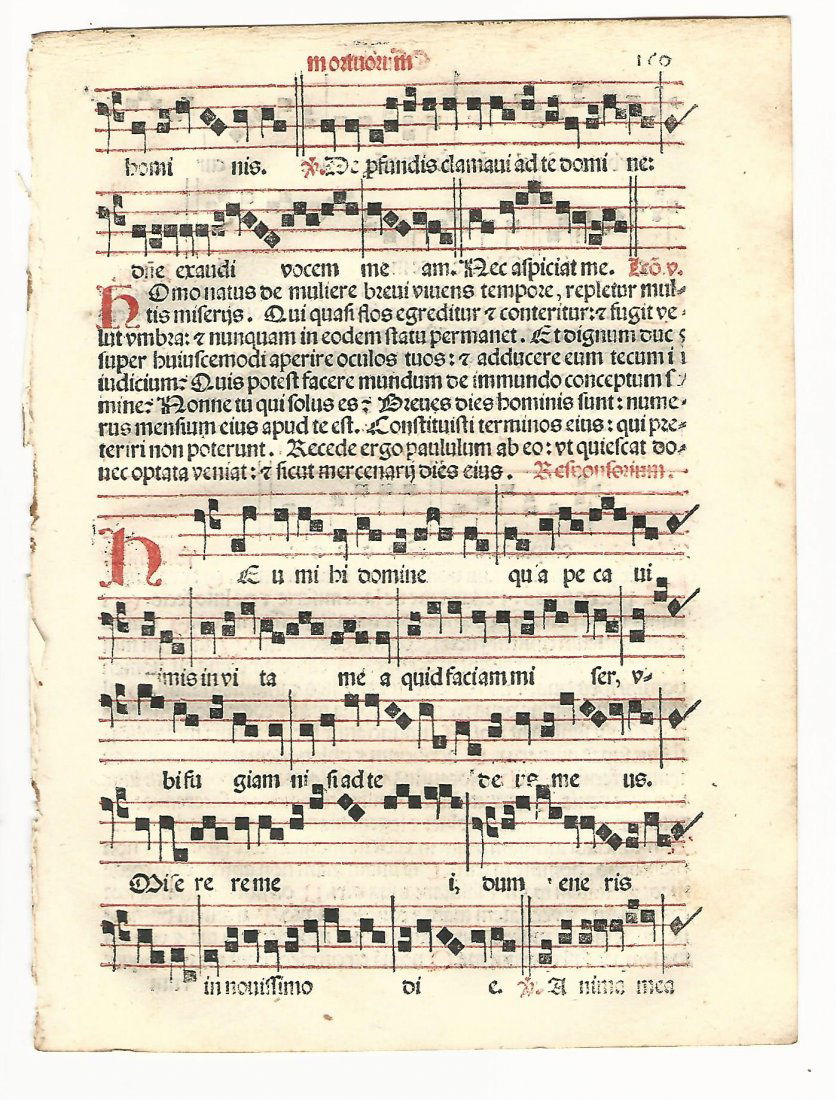 mortuorum
homi nis. ℣. De ꝓfundis clamaui ad te domi ne:
dñe exaudi vocem me am. Nec aspiciat me. Leõ. v.
HOmo natus de muliere breui viuens tempore, repletur mul-
tis miserijs. Qui quasi flos egreditur ⁊ conteritur: ⁊ fugit ve
lut vmbra: ⁊ nunquam in eodem statu permanet. Et dignum duc s
super huiuscemodi aperire oculos tuos: ⁊ adducere eum tecum i
iudicium? Quis potest facere mundum de immundo conceptum s
mine? Nonne tu qui solus es? Breues dies hominis sunt: nume-
rus mensium eius apud te est. Constituisti terminos eius: qui pre-
teriri non poterunt. Recede ergo paululum ab eo: vt quiescat do-
nec optata veniat: ⁊ sicut mercenarij dies eius. Responsorium.
HE u mi hi domine quia pe ca ui
nimis in vi ta me a quid faciam mi ser, v-
bi fu giam ni si ad te de us me us.
Mise re re me i, dum vene ris
in nouissimo di e. ℣. A nima mea